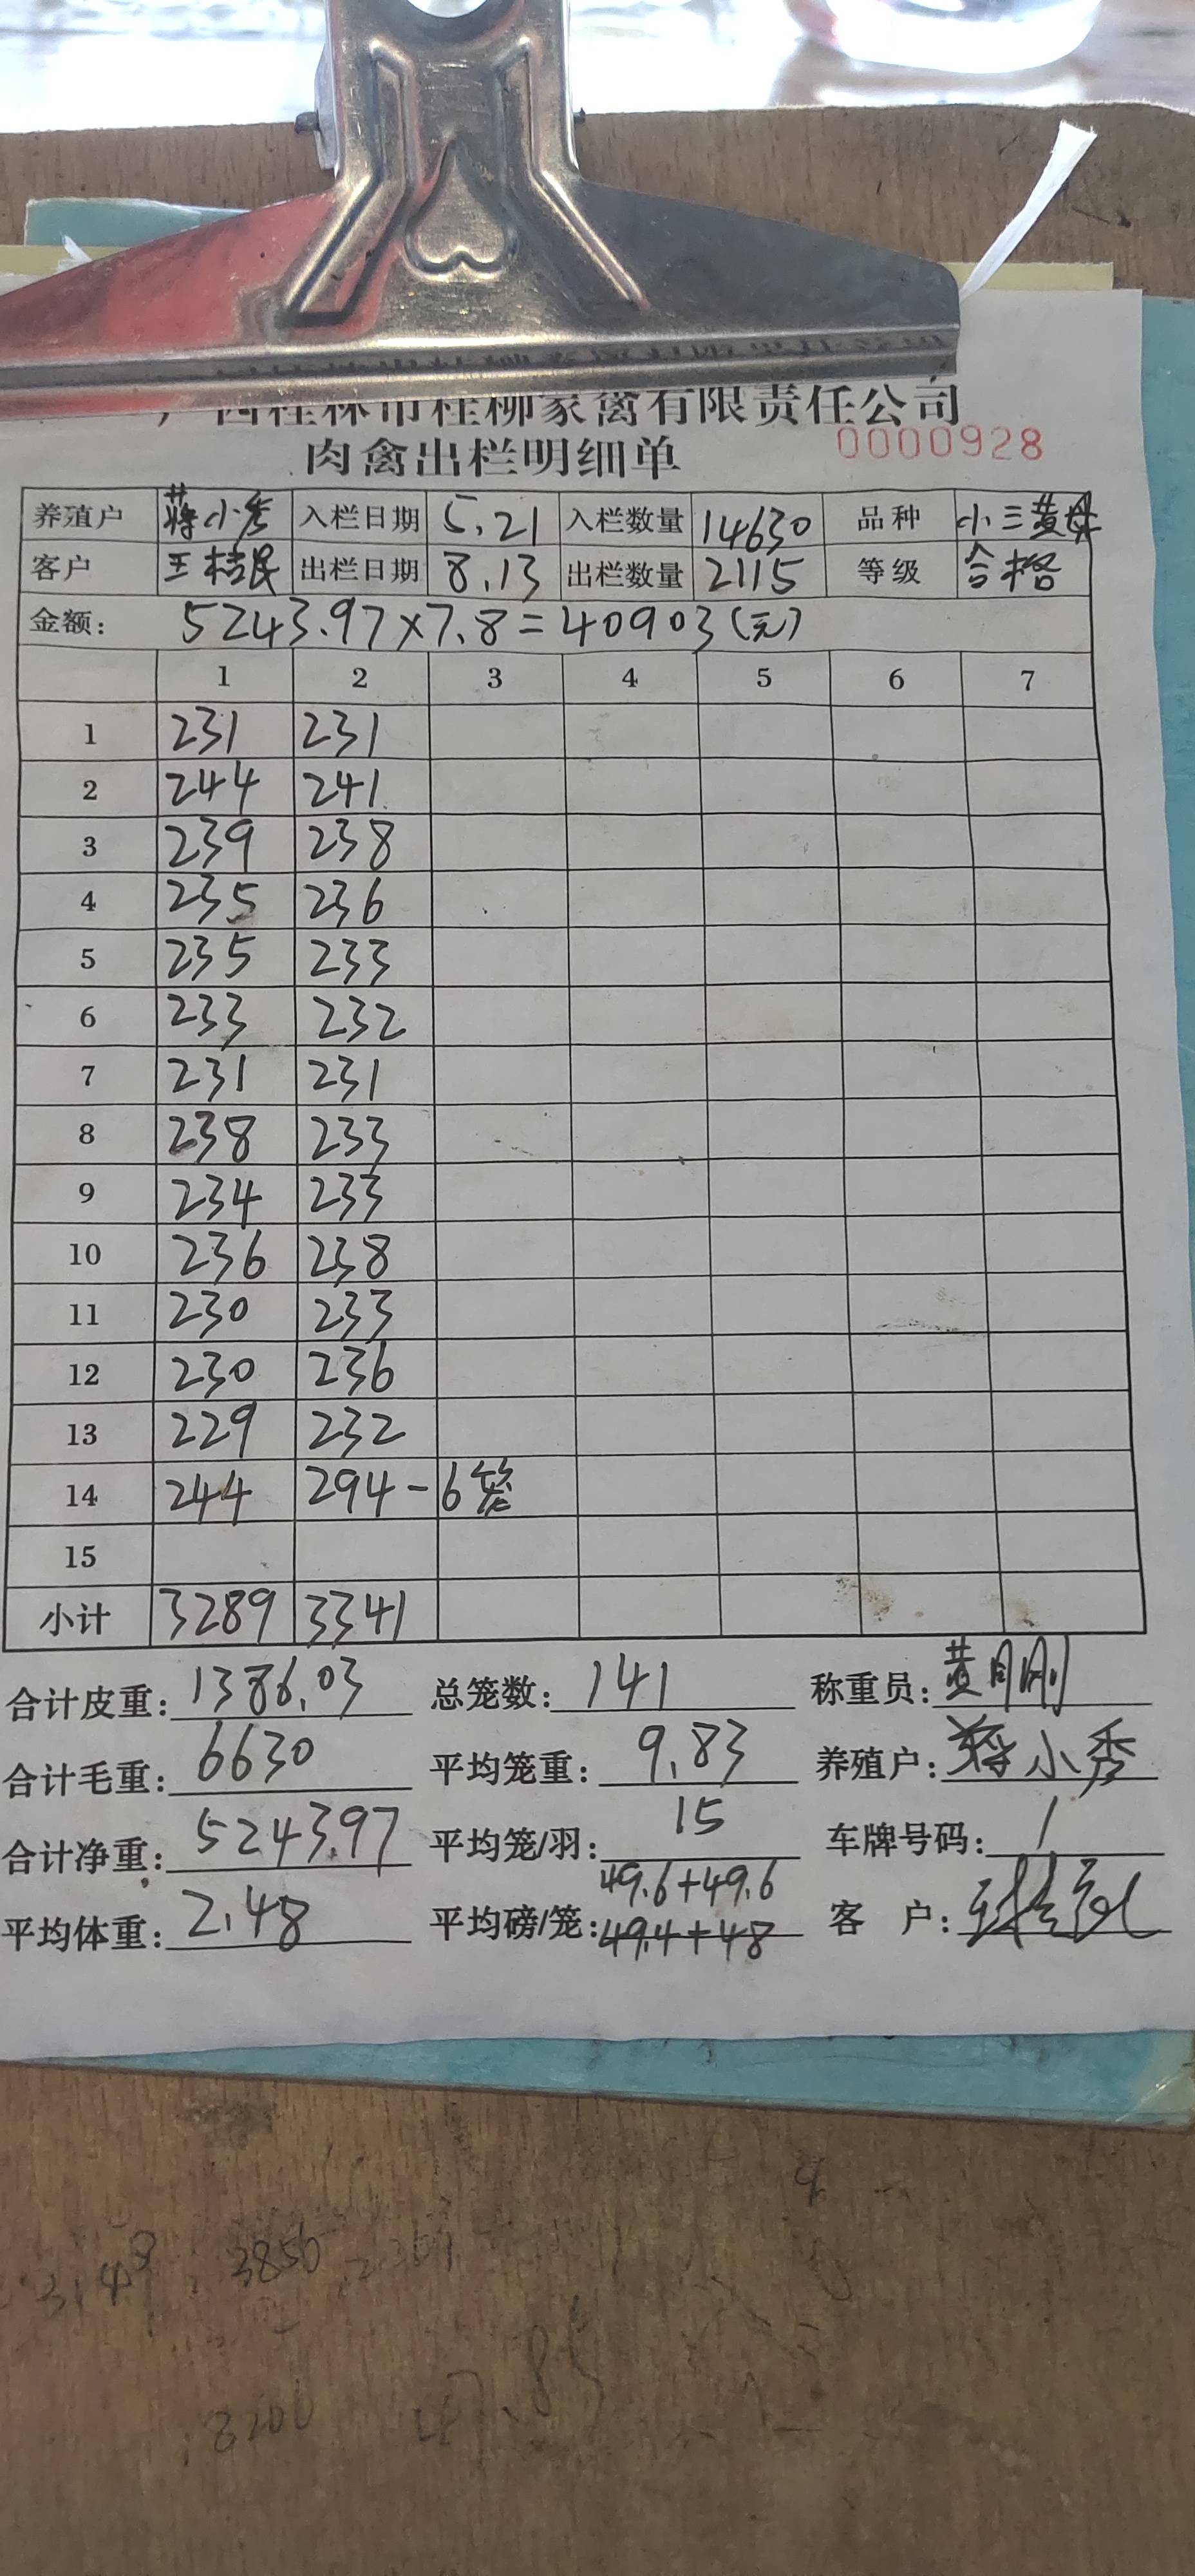 广西桂林市桂柳家禽有限责任公司
肉禽出栏明细单 0000928
养殖户 蒋小秀 入栏日期 5.21 入栏数量 14630 品种 小三黄母
客户 王桔民 出栏日期 8.13 出栏数量 2115 等级 合格
金额: 5243.97×7.8=40903(元)
1 2 3 4 5 6 7
1 231 231
2 244 241
3 239 238
4 235 236
5 235 233
6 233 232
7 231 231
8 238 233
9 234 233
10 236 238
11 230 233
12 230 236
13 229 232
14 244 294-6笼
15
小计 3289 3341
合计皮重: 1386.03 总笼数: 141 称重员: 黄月刚
合计毛重: 6630 平均笼重: 9.83 养殖户: 蒋小秀
合计净重: 5243.97 平均笼/羽: 15 车牌号码: 1
49.6+49.6
平均体重: 2.48 平均磅/笼: 49.4+48 客 户:
3850